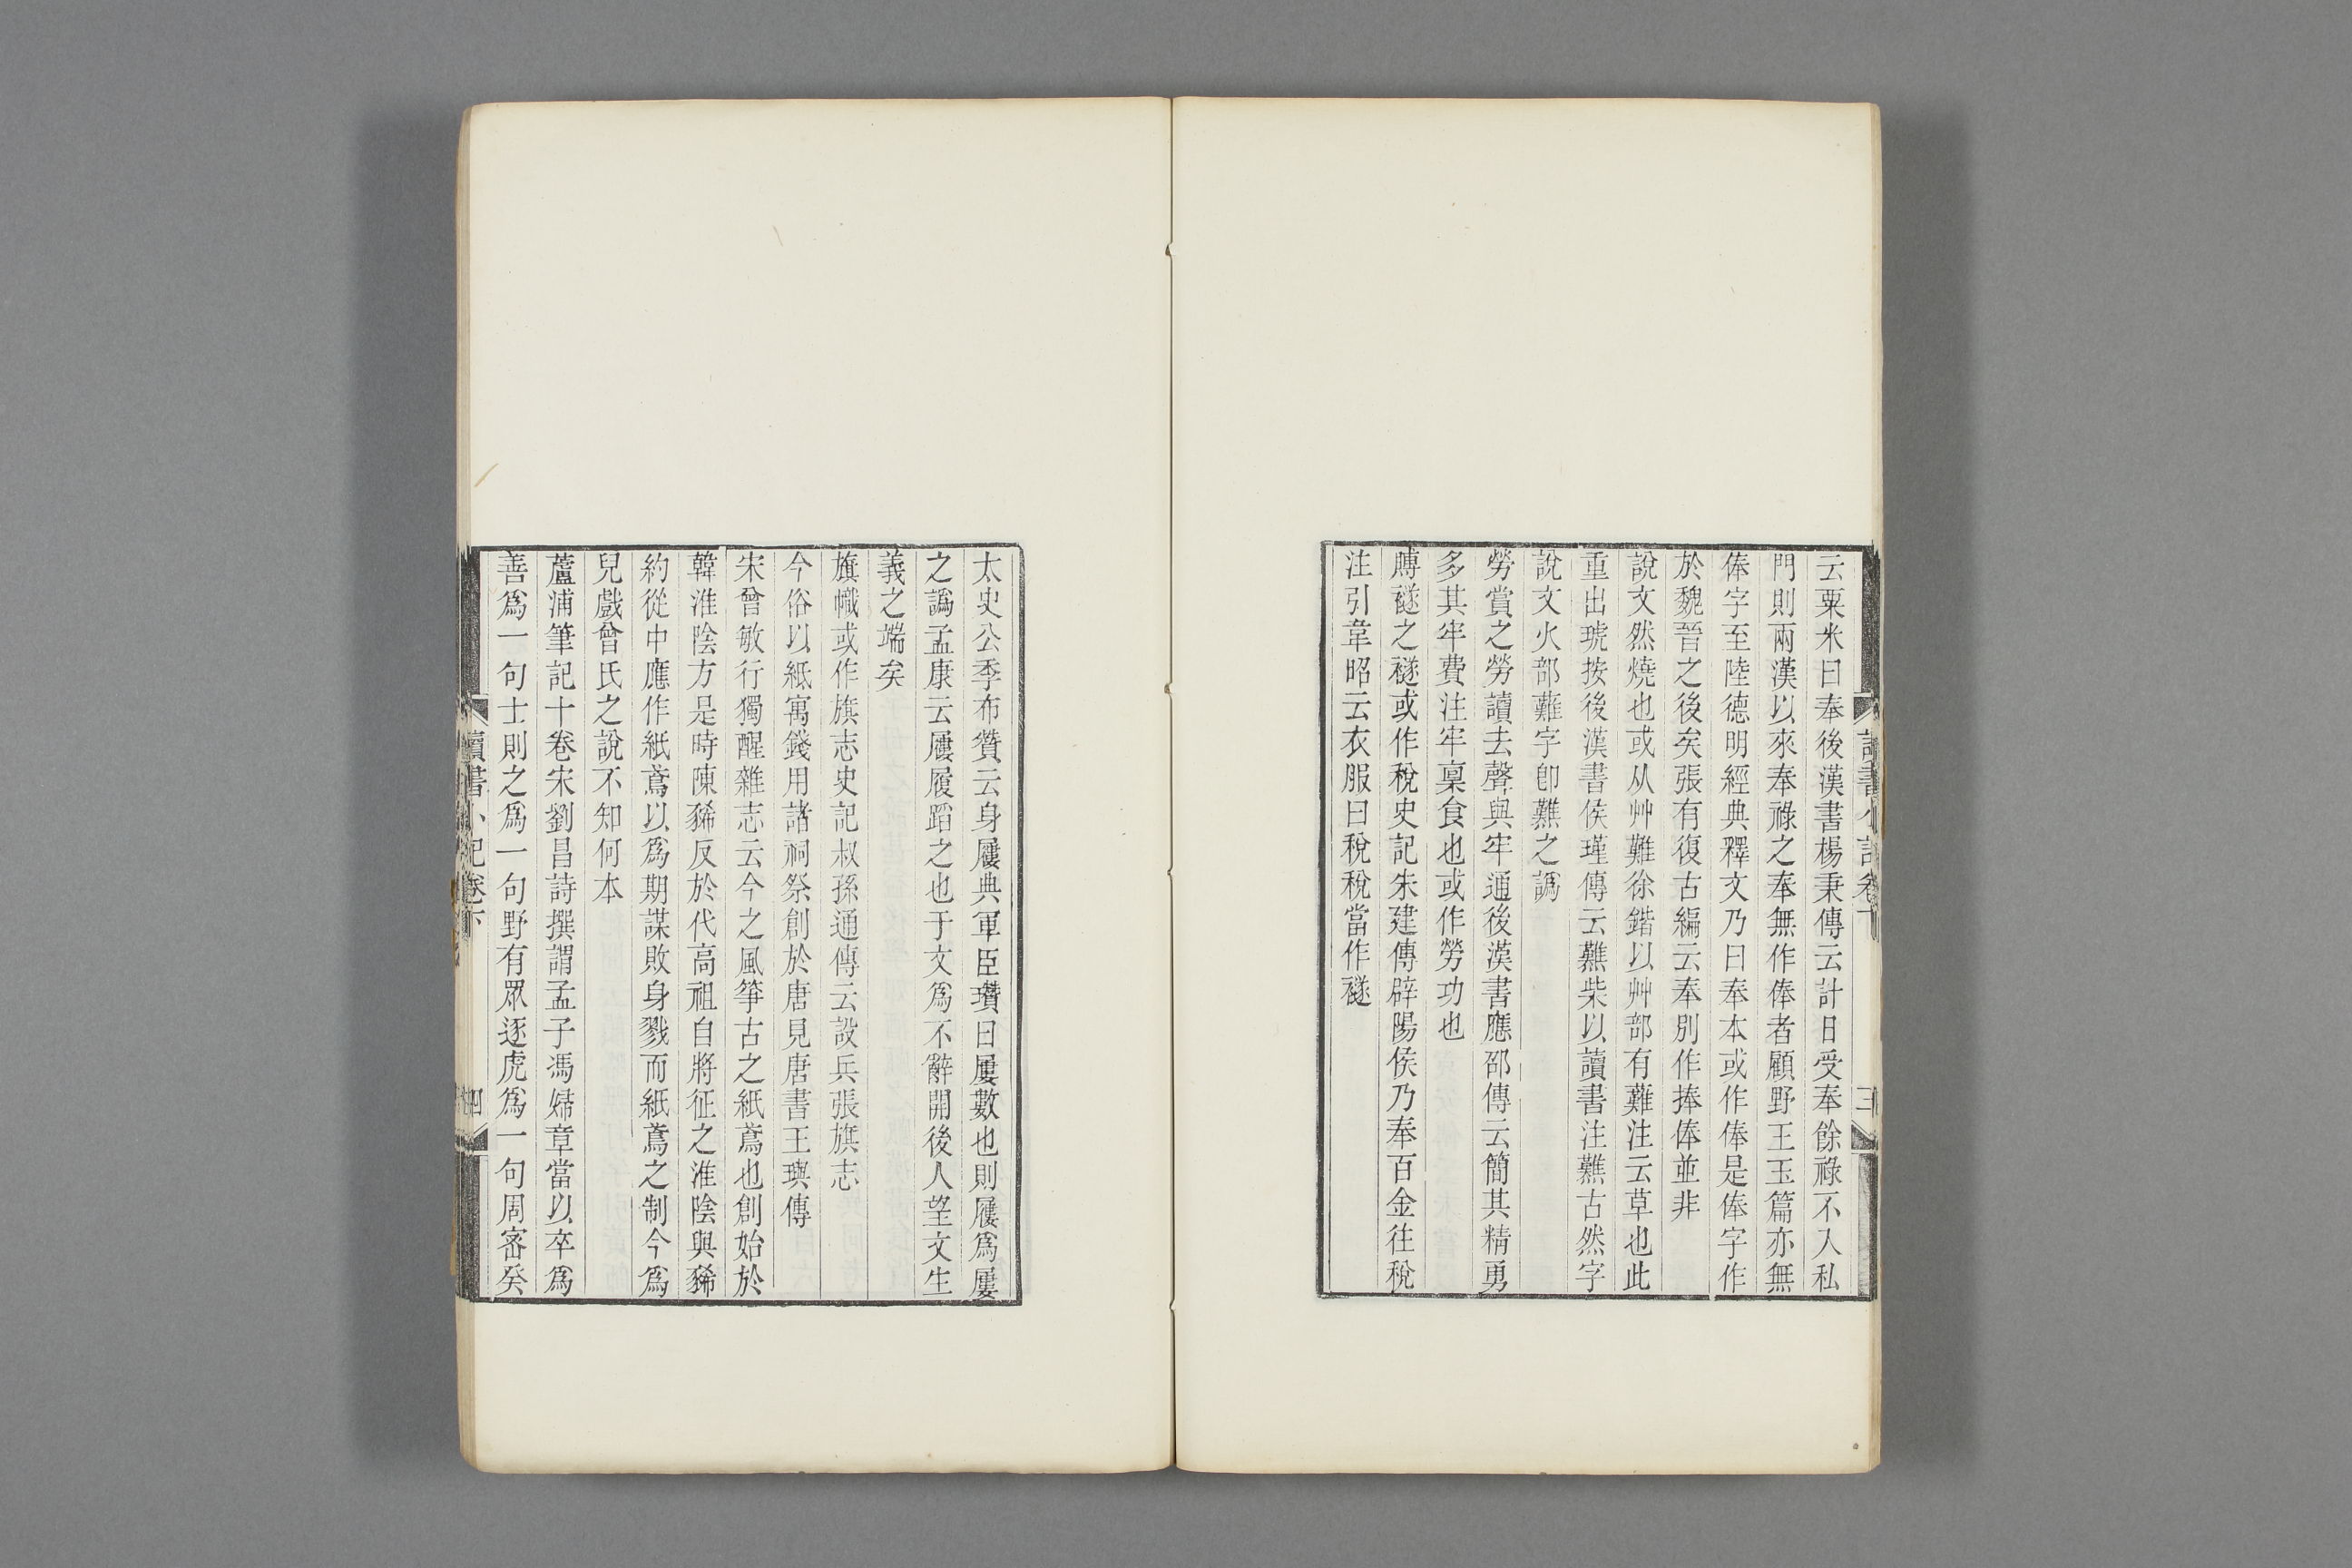 云粟米曰奉後漢書楊秉傳云計日受奉餘祿不入私
門則兩漢以來奉祿之奉無作俸者顧野王玉篇亦無
俸字至陸德明經典釋文乃曰奉本或作俸是俸字作
於魏晉之後矣張有復古編云奉別作捧俸並非
說文然燒也或从艸難徐鍇以艸部有蘸注云草也此
重出琥按後漢書侯瑾傳云蘸柴以讀書注蘸古然字
說文火部蘸字卽難之譌
勞賞之勞讀去聲與牢通後漢書應邵傳云簡其精勇
多其牢費注牢稟食也或作勞功也
賻襚之襚或作稅史記朱建傳辟陽侯乃奉百金往稅
注引韋昭云衣服曰稅稅當作襚
讀書小記卷下
三
太史公季布贊云身屨典軍臣瓚曰屢數也則屨爲屢
之譌孟康云屨履蹈之也于文爲不辭開後人望文生
義之端矣
旗幟或作旗志史記叔孫通傳云設兵張旗志
今俗以紙寓錢用諸祠祭創於唐見唐書王璵傳
宋曾敏行獨醒雜志云今之風箏古之紙鳶也創始於
韓淮陰方是時陳豨反於代高祖自將征之淮陰與豨
約從中應作紙鳶以爲期謀敗身戮而紙鳶之制今爲
兒戲曾氏之說不知何本
蘆浦筆記十卷宋劉昌詩撰謂孟子馮婦章當以卒爲
善爲一句士則之爲一句野有眾逐虎爲一句周密癸
讀書小記卷下
四